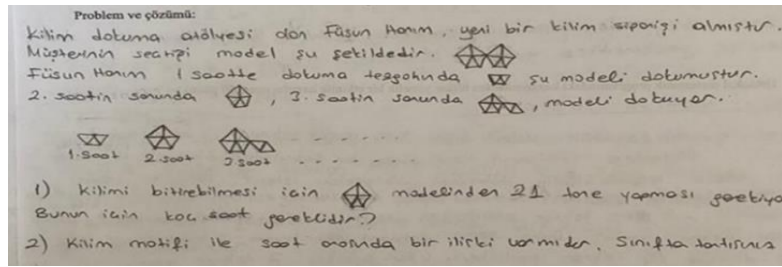 Problem ve çözümü:
Kilim dokuma atölyesi olan Füsun Hanım, yeni bir kilim siparişi almıştır.
Müşterinin seçtiği model şu şekildedir.
Füsun Hanım 1 saatte dokuma tezgahında şu modeli dokumuştur.
2. saatin sonunda , 3. saatin sonunda , modeli dokuyor.
1.saat 2.saat 3.saat
1) Kilimi bitirebilmesi için modelinden 21 tane yapması gerekiyo
Bunun için kaç saat gereklidir?
2) Kilim motifi ile saat arasında bir ilişki varmıdır. Sınıfta tartışınız